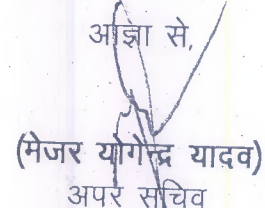 आज्ञा से,
(मेजर योगेन्द्र यादव)
अपर सचिव